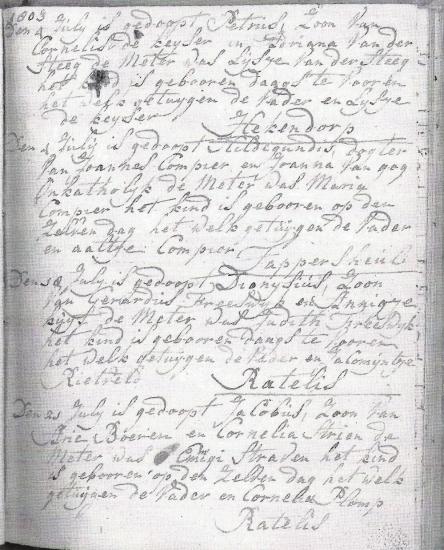 1803
Den 4 July is gedoopt Petrus, Zoon Van
Cornelis de keyser en Adriana Van der
Steeg de Meter was Lysye Van der Steeg
het kind is gebooren daags te Vooren
het welk getuygen de Vader en Lysye
de keyser
Hekendorp
Den 4 July is gedoopt Hildegundis, dogter
Van Joannes Compier en Joanna Van gog
Onkatholyk de Meter was Maria
Compier het kind is gebooren op den
Zelven dag het welk getuygen de Vader
en aaltye Compier
Pappersheul
Den July is gedoopt Dionysius, Zoon
Van Gerardus Vreeswyk en Annigye
de Meter was Judith Vreeswyk
het kind is gebooren daags te vooren
het welk getuygen de Vader en Jacomyntye
Rietveld
Ratelis
Den 21 July is gedoopt Jacobus, Zoon Van
Arie Boeren en Cornelia Strien de
Meter was Straven het kind
is gebooren op den Zelven dag het welk
getuygen de Vader en Cornelia Plomp
Ratelis